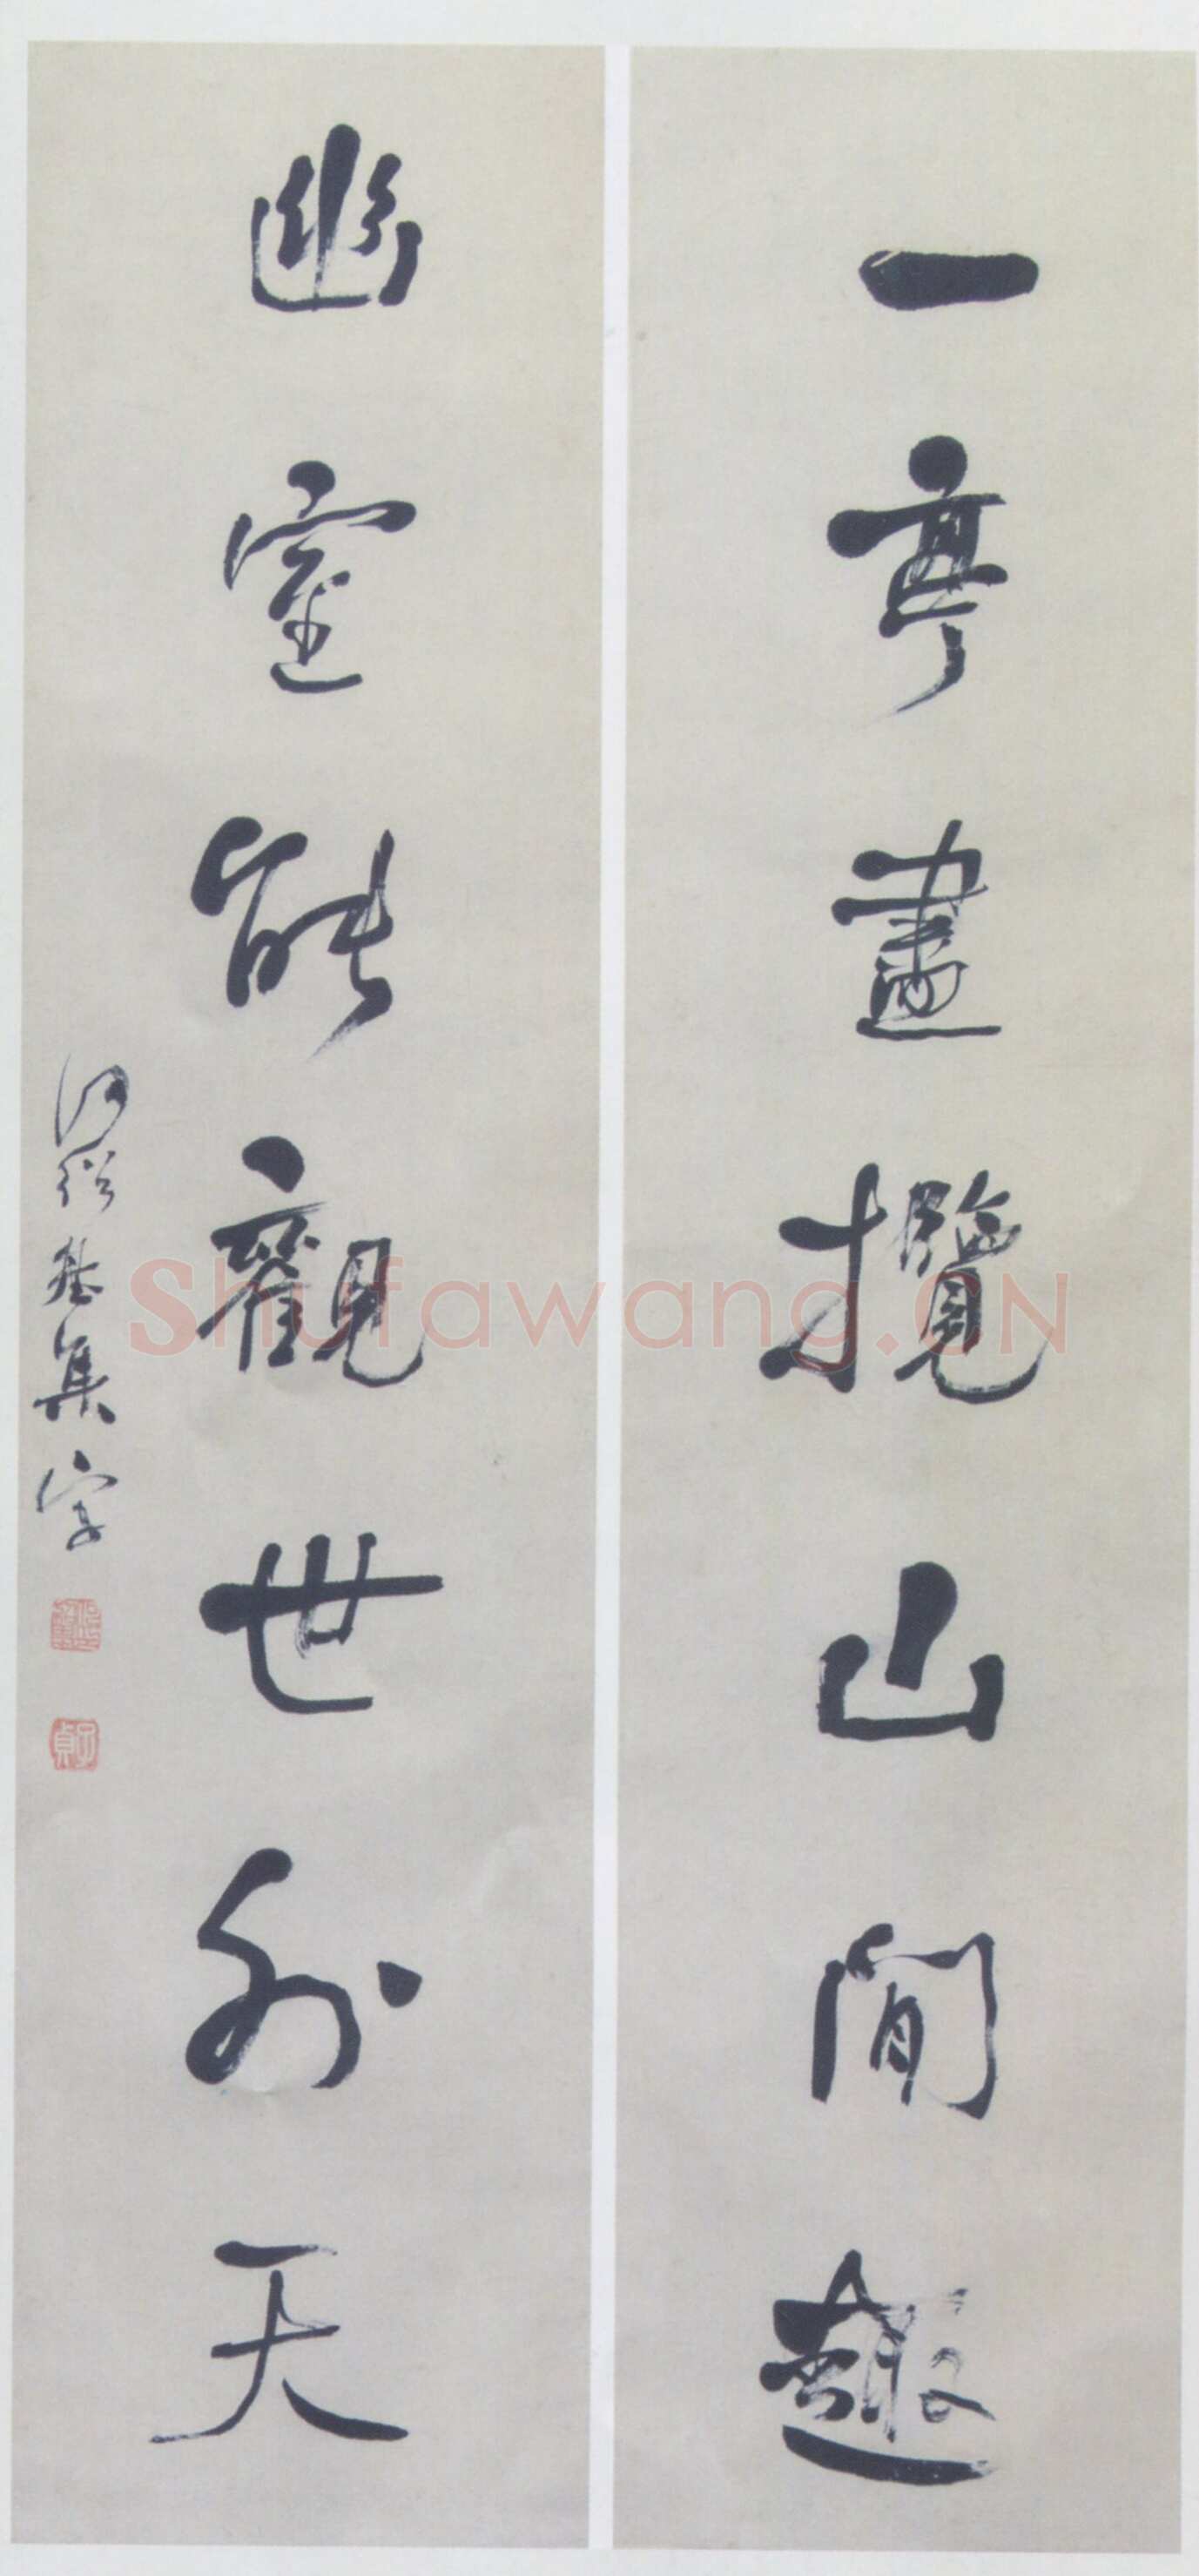 一亭盡攬山閒趣
幽室能觀世外天
何紹基集字
子貞
Shufawang.CN